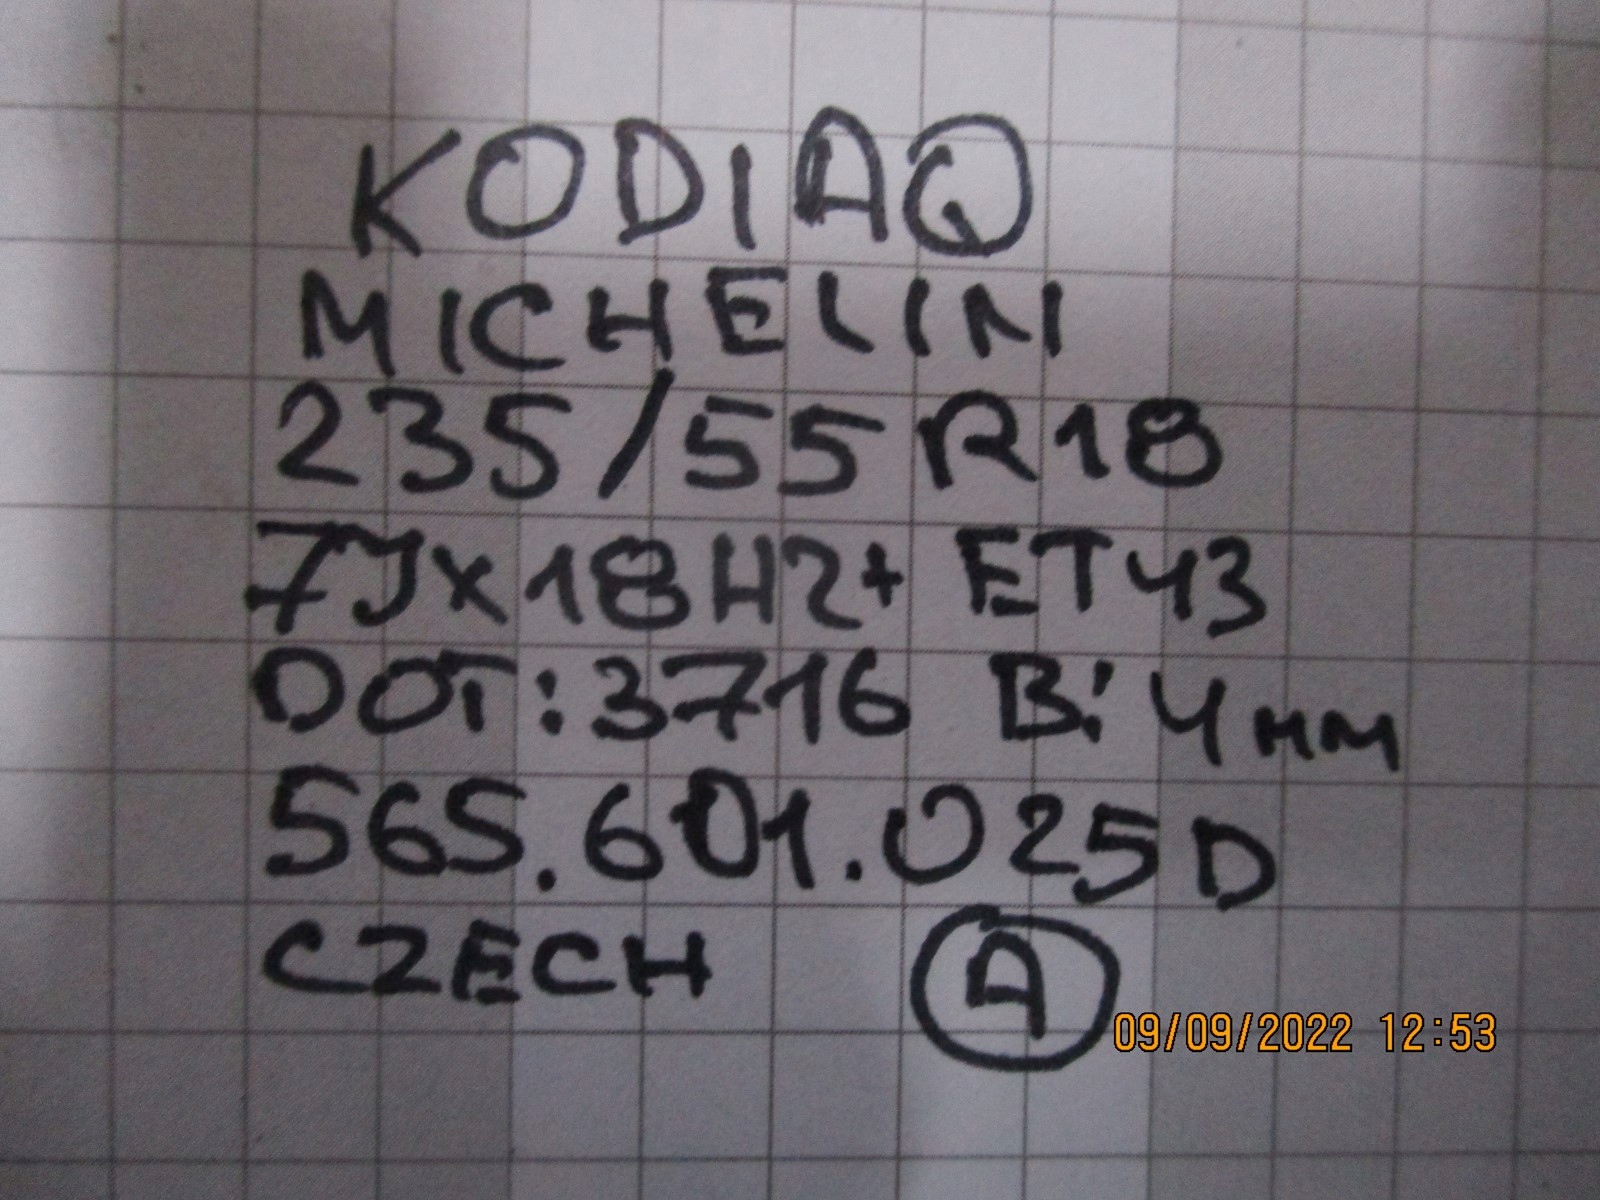 KODIAQ
MICHELIN
235/55 R18
7Jx18H2+ ET43
DOT:3716 B:4мм
565.601.025D
CZECH A
09/09/2022 12:53